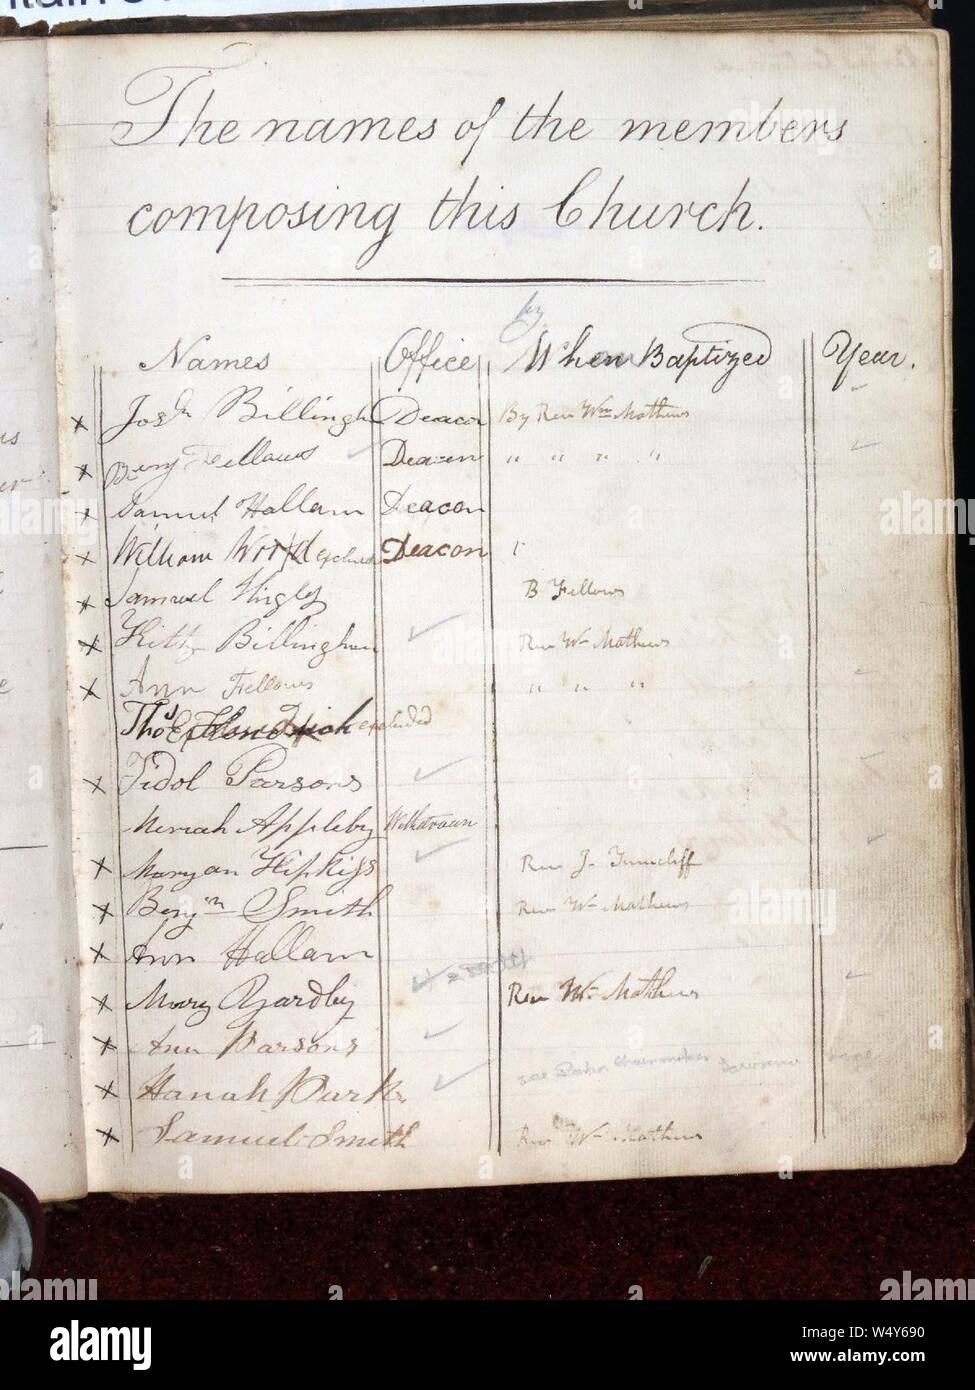 The names of the members
composing this Church.
by
Names Office When Baptized Year.
x Josh Billingh Deacon By Rev Wm Mathews
x Benj Fellows Deacon " " " "
x Samuel Hallam Deacon
x William Wood excluded Deacon "
x Samuel B Fellows
x Kitty Billingham Rev Wm Mathews
x Ann Fellows " " "
Thos excluded
x Parsons
Meriah Appleby Withdrawn
x Maryan Hipkiss Rev J. Tunnicliff
x Benjn Smith Rev Wm Mathews
x Ann Hallam
x Mary Yardley Rev Wm Mathews
x Ann Parsons
x Hanah Parks
x Samuel Smith Rev Wm Mathews
alamy
Image ID: W4Y690
www.alamy.com